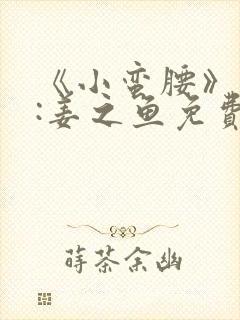 《小蛮腰》
:姜之鱼免费
莳茶余幽